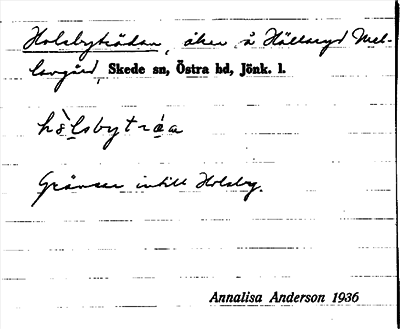 Holsbyträdan, åker, å Hällaryd Mel-
langård, Skede sn, Östra hd, Jönk. l.
hòlsbytráa
Gränsar intill Holsby.
Annalisa Anderson 1936